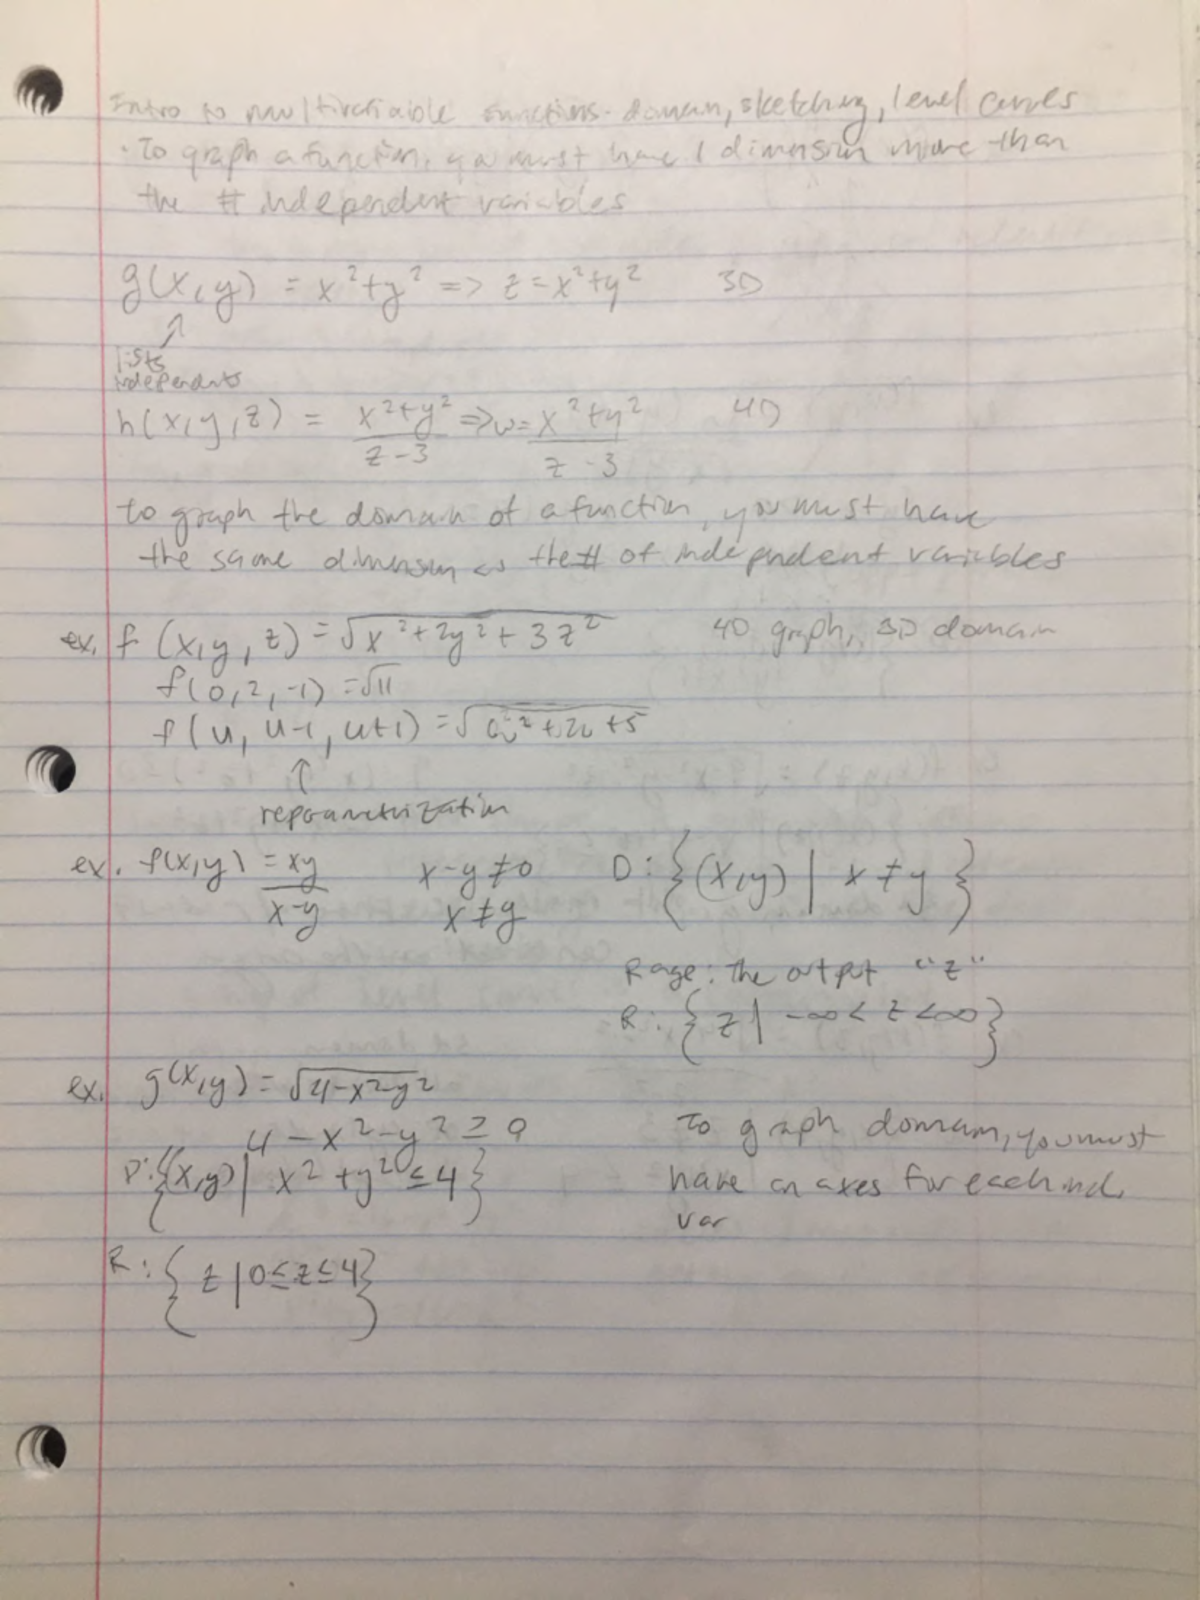 Intro to multivariable functions- domain, sketching, level curves
· To graph a function, you must have 1 dimension more than
the # independent variables
g(x,y) = x²+y² => z=x²+y² 3D
lists
independents
h(x,y,z) = (x²+y²)/(z-3) => w= (x²+y²)/(z-3) 4D
to graph the domain of a function, you must have
the same dimension as the # of independent variables
ex. f(x,y,z) = √(x²+2y²+3z²) 4D graph, 3D domain
f(0,2,-1) = √11
f(u, u-1, u+1) = √(6u²+2u+5)
↑
reparametrization
ex. f(x,y) = xy/(x-y) x-y≠0 D: {(x,y) | x≠y}
x≠y
Rage: the output "z"
R: {z | -∞ < z < ∞}
ex. g(x,y) = √(4-x²-y²)
4-x²-y² ≥ 0
D: {(x,y) | x²+y² ≤ 4}
R: {z | 0≤z≤4}
To graph domain, you must
have an axes for each ind.
var